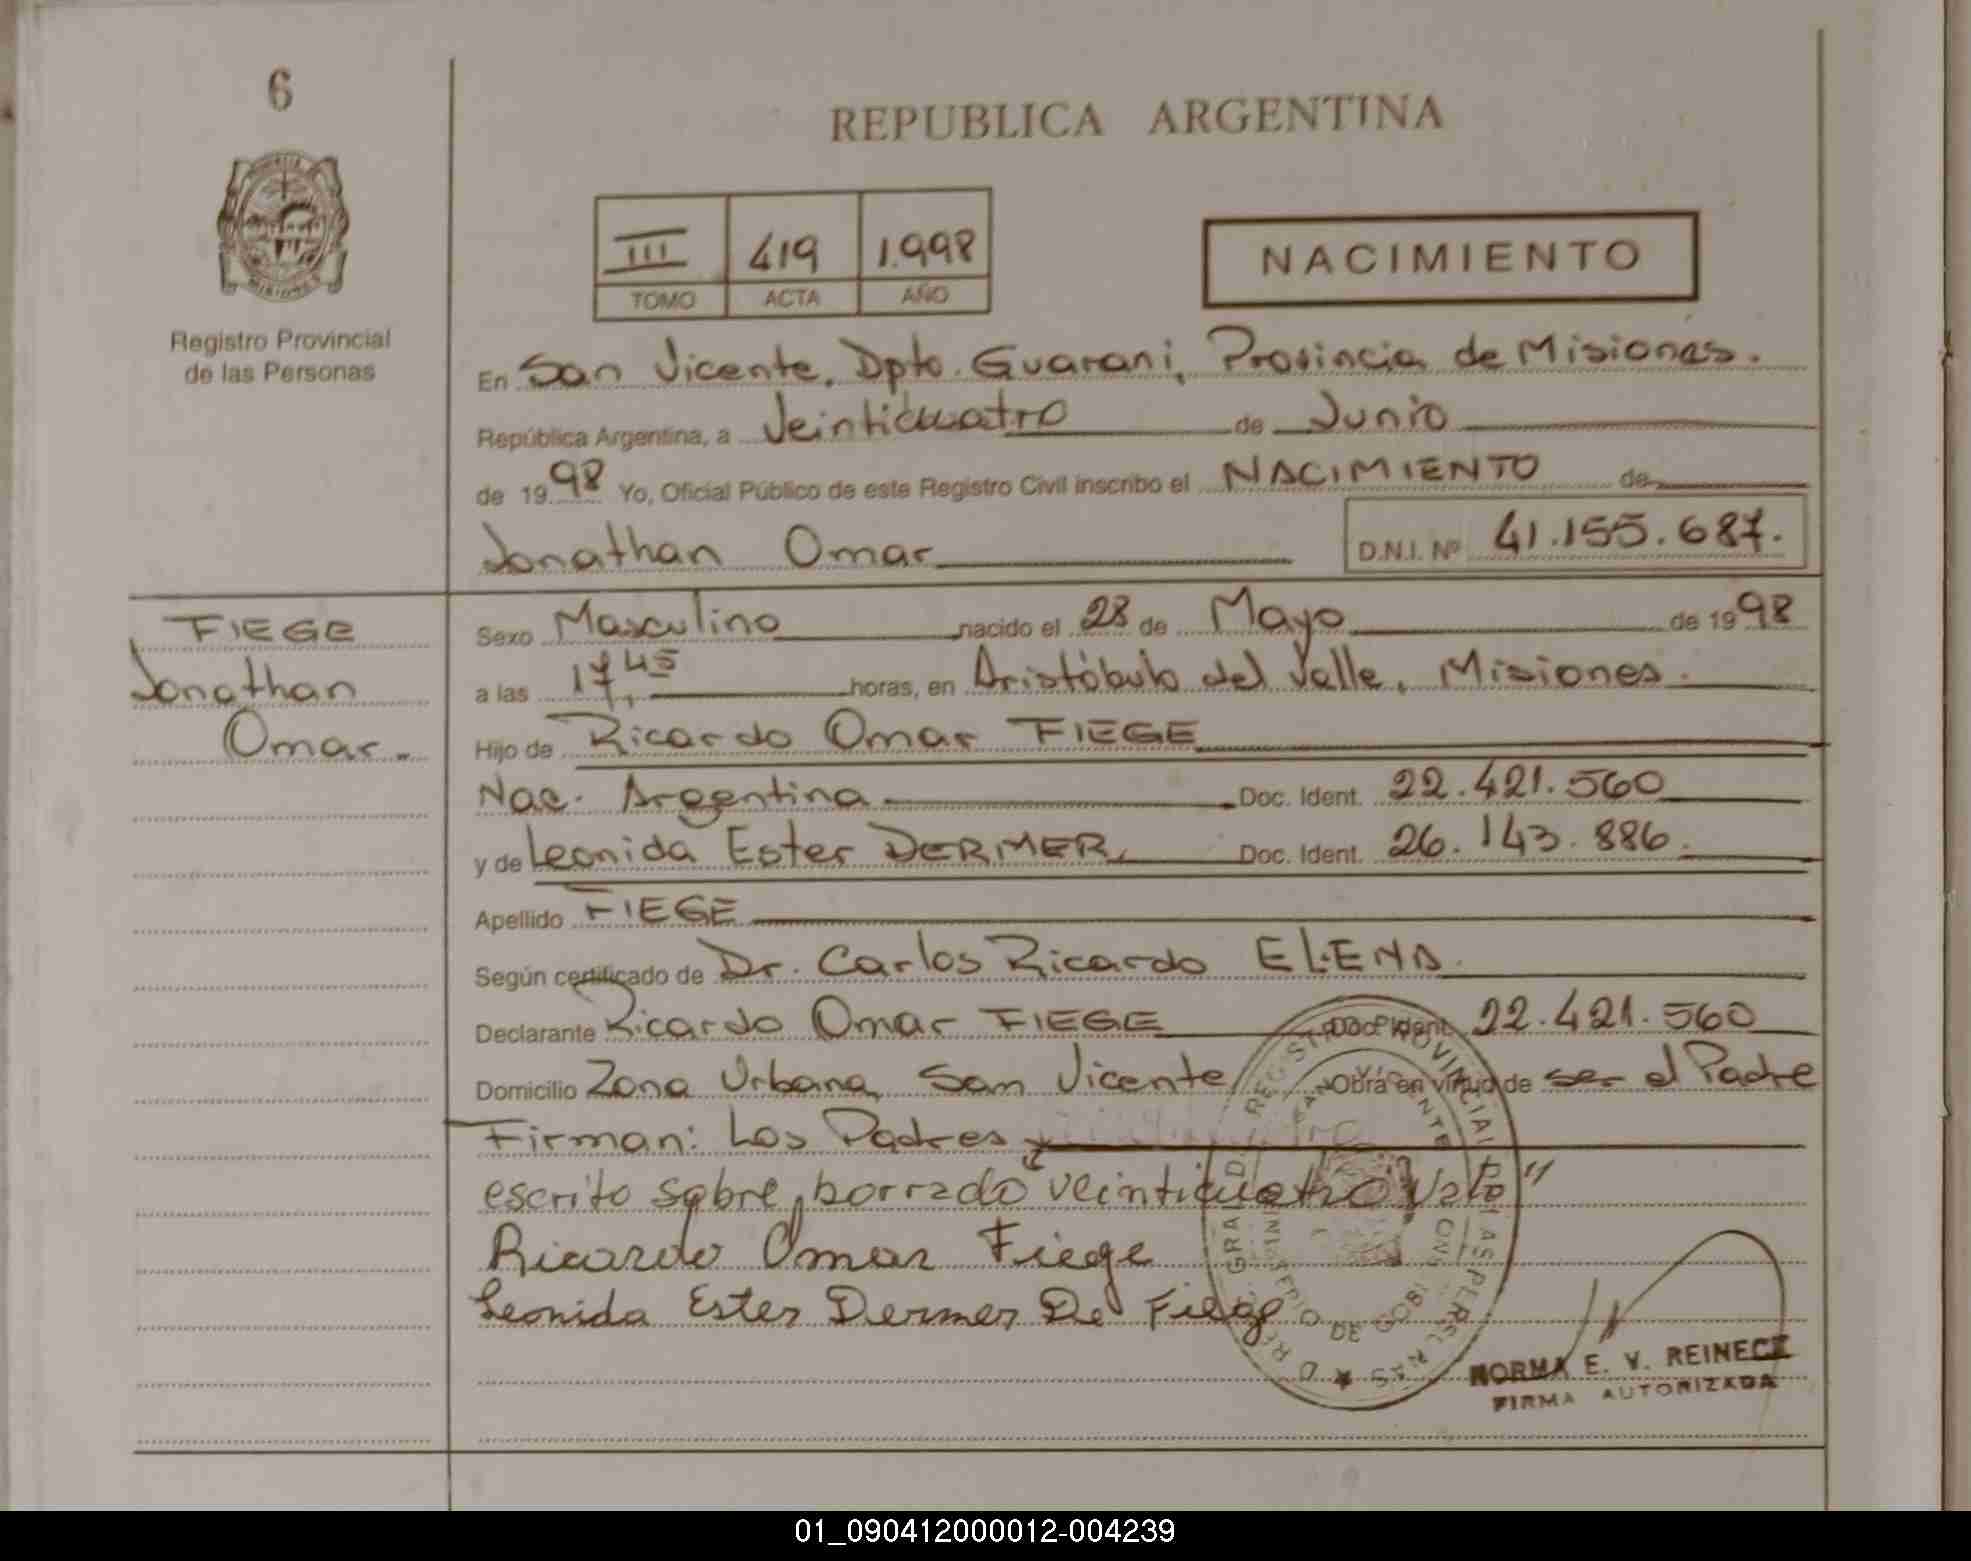 6
REPUBLICA ARGENTINA
III 419 1.998
TOMO ACTA AÑO
NACIMIENTO
MISIONES
Registro Provincial
de las Personas
En San Vicente, Dpto. Guarani, Provincia de Misiones.
República Argentina, a Veinticuatro de Junio
de 1998 Yo, Oficial Público de este Registro Civil inscribo el NACIMIENTO de
Jonathan Omar D.N.I. Nº 41.155.687.
FIEGE
Jonathan
Omar.
Sexo Masculino nacido el 28 de Mayo de 1998
a las 17,45 horas, en Aristóbulo del Valle, Misiones.
Hijo de Ricardo Omar FIEGE
Nac. Argentina Doc. Ident. 22.421.560
y de Leonida Ester DERMER, Doc. Ident. 26.143.886.
Apellido FIEGE
Según certificado de Dr. Carlos Ricardo ELENA.
Declarante Ricardo Omar FIEGE Doc. Ident. 22.421.560
Domicilio Zona Urbana, San Vicente Obra en virtud de ser el Padre
Firman: Los Padres
escrito sobre borrado veinticuatro Vale"
Ricardo Omar Fiege
Leonida Ester Dermer De Fiege
REGISTRO PROVINCIAL DE LAS PERSONAS
SAN VICENTE
NORMA E. V. REINECK
FIRMA AUTORIZADA
01_090412000012-004239